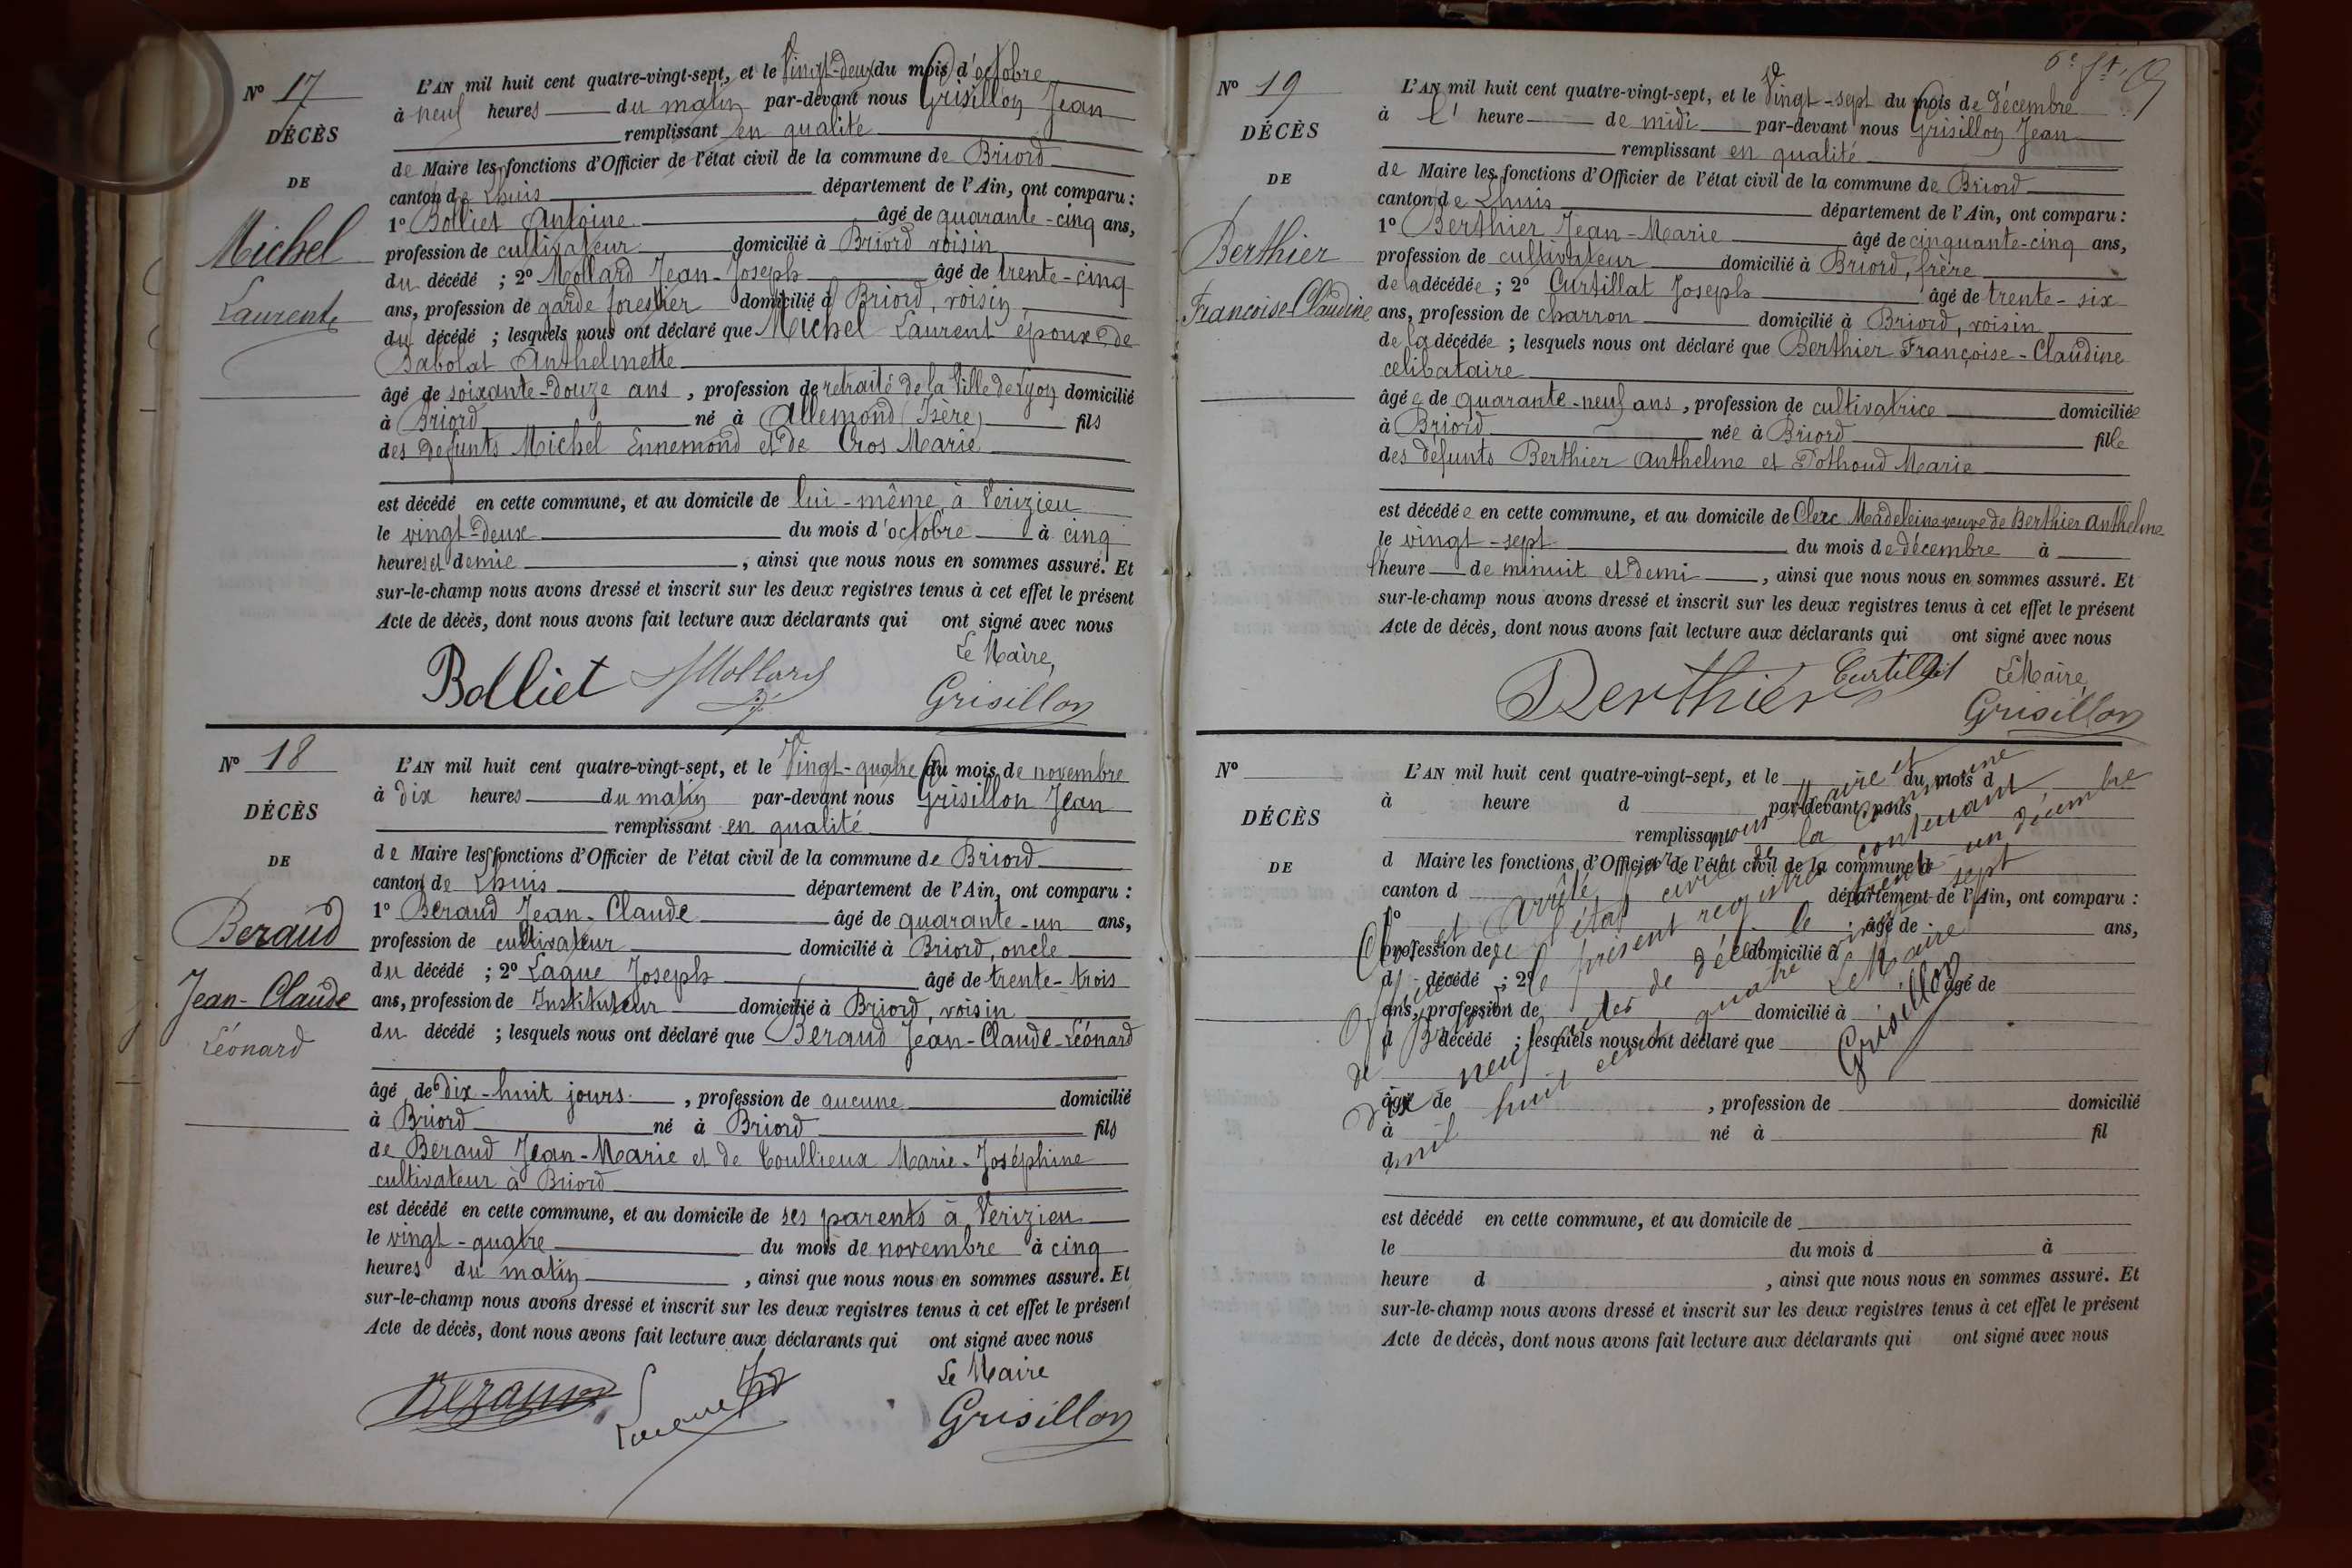 N° 17
DÉCÈS
DE
Michel
Laurent
L'AN mil huit cent quatre-vingt-sept, et le Vingt-deux du mois d'octobre
à neuf heures du matin par-devant nous Grisillon Jean
remplissant en qualité
de Maire les fonctions d'Officier de l'état civil de la commune de Briord
canton de Lhuis département de l'Ain, ont comparu :
1° Bolliet Antoine âgé de quarante-cinq ans,
profession de cultivateur domicilié à Briord voisin
du décédé ; 2° Mollard Jean-Joseph âgé de trente-cinq
ans, profession de garde forestier domicilié à Briord, voisin
du décédé ; lesquels nous ont déclaré que Michel Laurent époux de
Babolat Anthelmette
âgé de soixante-douze ans , profession de retraité de la Ville de Lyon domicilié
à Briord né à Allemond (Isère) fils
des défunts Michel Ennemond et de Cros Marie
est décédé en cette commune, et au domicile de lui-même à Verizieu
le vingt-deux du mois d'octobre à cinq
heures et demie , ainsi que nous nous en sommes assuré. Et
sur-le-champ nous avons dressé et inscrit sur les deux registres tenus à cet effet le présent
Acte de décès, dont nous avons fait lecture aux déclarants qui ont signé avec nous
Le Maire,
Bolliet Mollard Grisillon
N° 18
DÉCÈS
DE
Beraud
Jean-Claude
Léonard
L'AN mil huit cent quatre-vingt-sept, et le Vingt-quatre du mois de novembre
à dix heures du matin par-devant nous Grisillon Jean
remplissant en qualité
de Maire les fonctions d'Officier de l'état civil de la commune de Briord
canton de Lhuis département de l'Ain, ont comparu :
1° Béraud Jean-Claude âgé de quarante-un ans,
profession de cultivateur domicilié à Briord, oncle
du décédé ; 2° Laque Joseph âgé de trente-trois
ans, profession de Instituteur domicilié à Briord, voisin
du décédé ; lesquels nous ont déclaré que Beraud Jean-Claude-Léonard
âgé de dix-huit jours , profession de aucune domicilié
à Briord né à Briord fils
de Béraud Jean-Marie et de Coullieux Marie-Joséphine
cultivateur à Briord
est décédé en cette commune, et au domicile de ses parents à Verizieu
le vingt-quatre du mois de novembre à cinq
heures du matin , ainsi que nous nous en sommes assuré. Et
sur-le-champ nous avons dressé et inscrit sur les deux registres tenus à cet effet le présent
Acte de décès, dont nous avons fait lecture aux déclarants qui ont signé avec nous
Le Maire
Beraud Laque Grisillon
N° 19
DÉCÈS
DE
Berthier
Françoise-Claudine
L'AN mil huit cent quatre-vingt-sept, et le Vingt-sept du mois de décembre
à l' heure de midi par-devant nous Grisillon Jean
remplissant en qualité
de Maire les fonctions d'Officier de l'état civil de la commune de Briord
canton de Lhuis département de l'Ain, ont comparu :
1° Berthier Jean-Marie âgé de cinquante-cinq ans,
profession de cultivateur domicilié à Briord, frère
de la décédée ; 2° Curtillat Joseph âgé de trente-six
ans, profession de charron domicilié à Briord, voisin
de la décédée ; lesquels nous ont déclaré que Berthier Françoise-Claudine
célibataire
âgée de quarante-neuf ans , profession de cultivatrice domiciliée
à Briord née à Briord fille
des défunts Berthier Anthelme et Pothoud Marie
est décédée en cette commune, et au domicile de Clerc Madeleine veuve de Berthier Anthelme
le vingt-sept du mois de décembre à
l'heure de minuit et demi , ainsi que nous nous en sommes assuré. Et
sur-le-champ nous avons dressé et inscrit sur les deux registres tenus à cet effet le présent
Acte de décès, dont nous avons fait lecture aux déclarants qui ont signé avec nous
Berthier Curtillat Le Maire,
Grisillon
N°
DÉCÈS
DE
L'AN mil huit cent quatre-vingt-sept, et le du mois d
à heure d par-devant nous
remplissant
d Maire les fonctions d'Officier de l'état civil de la commune d
canton d département de l'Ain, ont comparu :
1° âgé de ans,
profession de domicilié à
d décédé ; 2° âgé de
ans, profession de domicilié à
d décédé ; lesquels nous ont déclaré que
âgé de , profession de domicilié
à né à fil
d
est décédé en cette commune, et au domicile de
le du mois d à
heure d , ainsi que nous nous en sommes assuré. Et
sur-le-champ nous avons dressé et inscrit sur les deux registres tenus à cet effet le présent
Acte de décès, dont nous avons fait lecture aux déclarants qui ont signé avec nous
Clos et arrêté par nous Maire et
Officier de l'état civil de la commune
de Briord le présent registre contenant
dix neuf actes de décès le trente-un décembre
mil huit cent quatre vingt sept
Le Maire
Grisillon